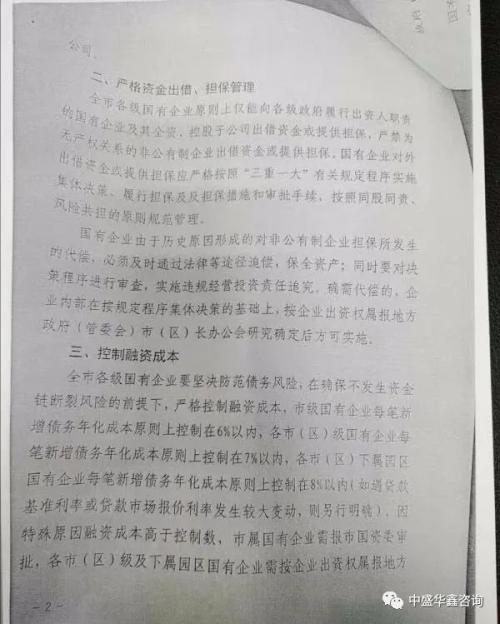 公司。
二、严格资金出借、担保管理
全市各级国有企业原则上仅能向各级政府履行出资人职责
的国有企业及其全资、控股子公司出借资金或提供担保，严禁为
无产权关系的非公有制企业出借资金或提供担保。国有企业对外
出借资金或提供担保应严格按照“三重一大”有关规定程序实施
集体决策、履行担保及反担保措施和审批手续，按照同股同责、
风险共担的原则规范管理。
国有企业由于历史原因形成的对非公有制企业担保所发生
的代偿，必须及时通过法律等途径追偿，保全资产；同时要对决
策程序进行审查，实施违规经营投资责任追究。确需代偿的，企
业内部在按规定程序集体决策的基础上，按企业出资权属报地方
政府（管委会）市（区）长办公会研究确定后方可实施。
三、控制融资成本
全市各级国有企业要坚决防范债务风险，在确保不发生资金
链断裂风险的前提下，严格控制融资成本，市级国有企业每笔新
增债务年化成本原则上控制在6%以内，各市（区）级国有企业每
笔新增债务年化成本原则上控制在7%以内，各市（区）下属园区
国有企业每笔新增债务年化成本原则上控制在8%以内（如遇贷款
基准利率或贷款市场报价利率发生较大变动，则另行明确）。因
特殊原因融资成本高于控制数，市属国有企业需报市国资委审
批，各市（区）级及下属园区国有企业需按企业出资权属报地方
- 2 -
中盛华鑫咨询